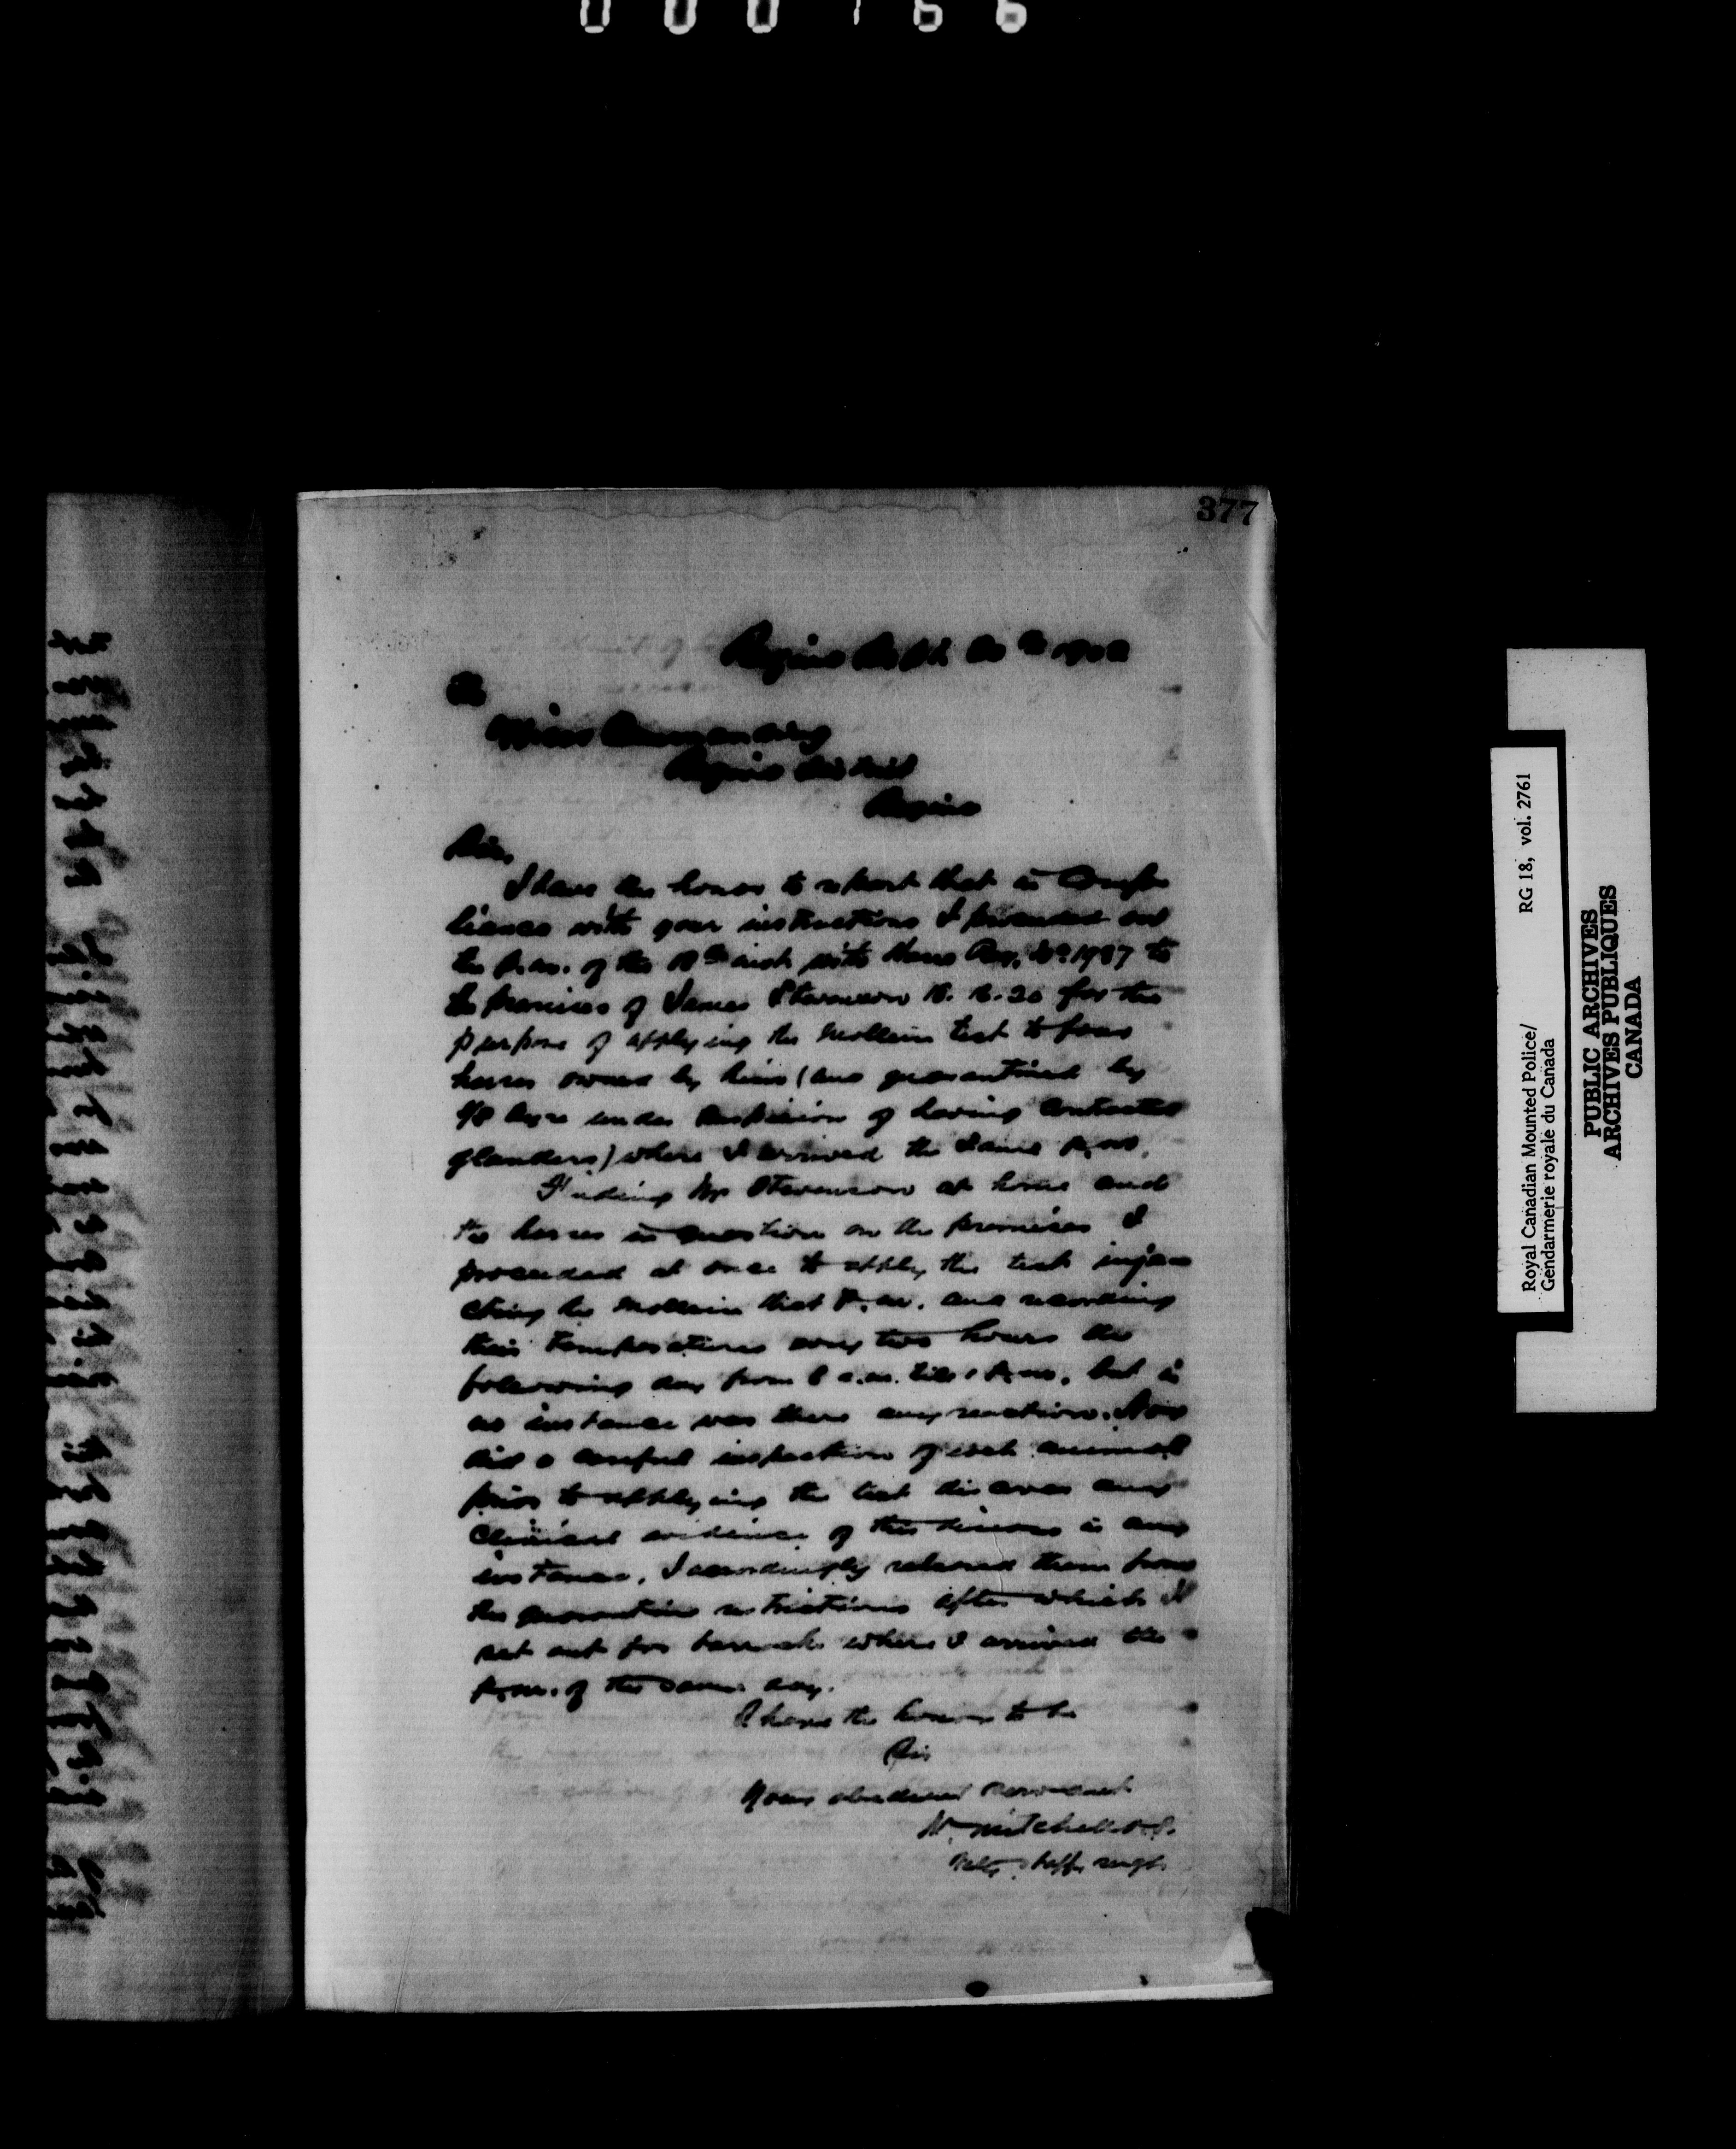 000166
377
Regina 1902
The
Officer Commanding
Regina District
Regina
Sir,
I have the honor to report that in Comp
liance with your instructions I proceeded on
the p.m. of the inst with Horse Reg. No 1987 to
the premises of James Stevenson for the
purpose of applying the Mallein test to four
horses owned by him (and quarantined by
under suspicion of having contracted
glanders) where I arrived the same p.m.
Finding Mr Stevenson at home and
the horses in question on the premises I
proceeded at once to apply the test inje
cting the Mallein that p.m. and recording
their temperatures every two hours the
following day from 6 a.m. till p.m., but in
no instance was there any reaction. Nor
did a careful inspection of each animal
prior to applying the test discover any
Clinical evidence of the disease in any
instance, I accordingly released them from
the quarantine restrictions after which I
set out for barracks where I arrived the
p.m. of the same day.
I have the honor to be
Sir
Your obedient servant
W. Mitchell
Staff Sergt.
Royal Canadian Mounted Police/ RG 18, vol. 2761
Gendarmerie royale du Canada
PUBLIC ARCHIVES
ARCHIVES PUBLIQUES
CANADA